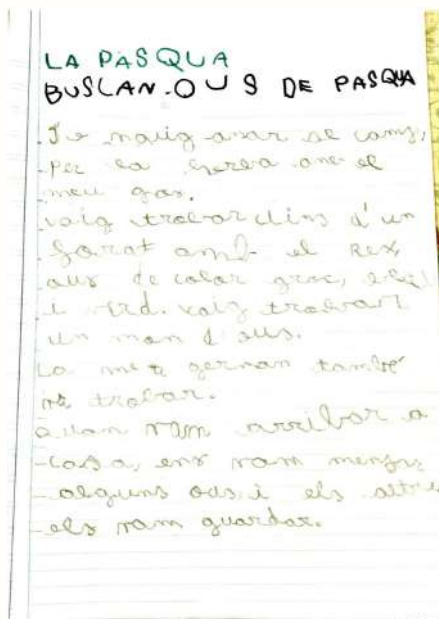 LA PASQUA
BUSCAN.OUS DE PASQUA
Jo maig anar al camp,
per la gerba amb el
meu gos.
vaig trobar dins d'un
forat amb el Rex,
ous de color groc,
i verd. vaig trobar
un mon d'ous.
La meva german també
va trobar.
Quan vam arribar a
casa, ens vam menjar
alguns ous i els altres
els vam guardar.